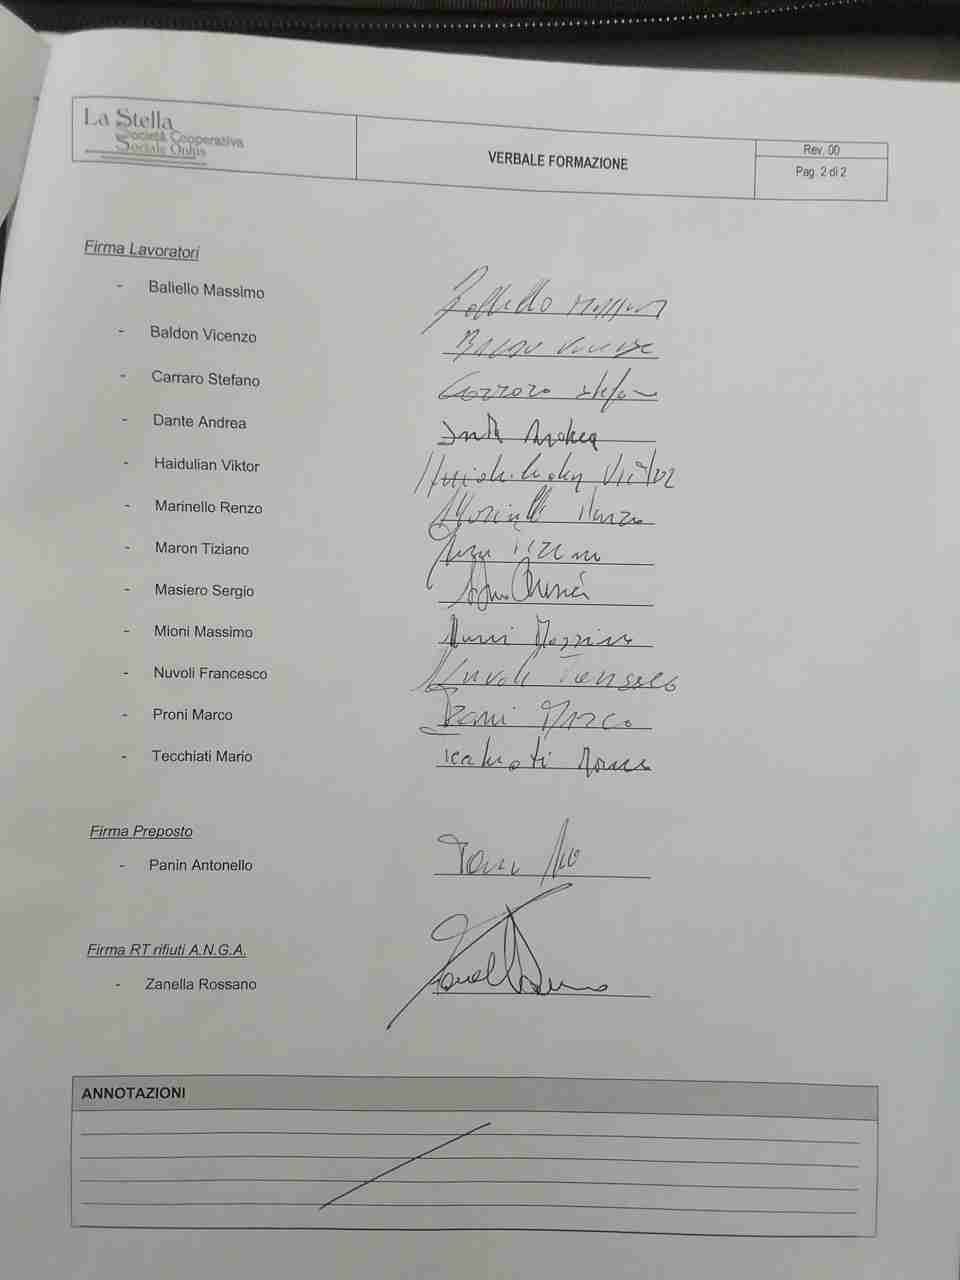 La Stella
Società Cooperativa
Sociale Onlus
VERBALE FORMAZIONE
Rev. 00
Pag. 2 di 2
Firma Lavoratori
- Baliello Massimo
- Baldon Vicenzo
- Carraro Stefano Carraro Stefano
- Dante Andrea Dante Andrea
- Haidulian Viktor
- Marinello Renzo Marinello Renzo
- Maron Tiziano
- Masiero Sergio
- Mioni Massimo Mioni Massimo
- Nuvoli Francesco Nuvoli
- Proni Marco Proni Marco
- Tecchiati Mario
Firma Preposto
- Panin Antonello
Firma RT rifiuti A.N.G.A.
- Zanella Rossano
ANNOTAZIONI